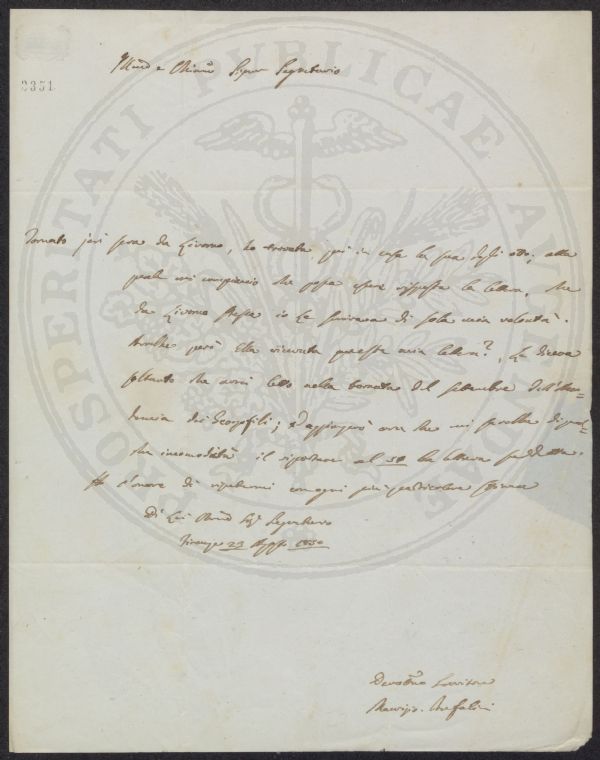 Illmo e Chiarmo Signor Segretario
3351
PROSPERITATI PUBLICAE AUGENDAE
Tornato jeri sera da Livorno, ho trovata qui in casa la sua degli otto; alla
quale mi compiaccio che possa essere risposta la lettera, che
da Livorno stessa io Le scriveva di sola mia volontà.
Avrebbe però Ella ricevuta questa mia lettera? Le diceva
soltanto che avrei letto nella tornata del settembre dell'Acca-
demia dei Georgofili; ed aggiungo ora che mi sarebbe di
incomodità il al 30 la lettura suddetta.
Ho l'onore di ripetermi con ogni più particolare stima
Di Lei Chiarmo Sigr Segretario
Firenze 23 Agosto 1850
Devotmo Servitore
Maurizio Bufalini